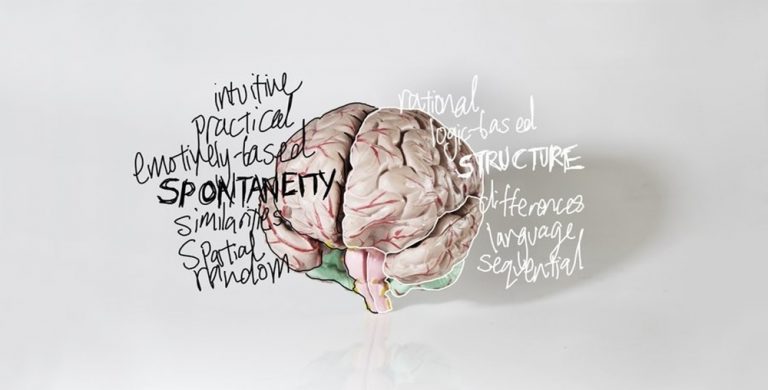 intuitive
practical
emotively-based
SPONTANEITY
similarities
spatial
random
rational
logic-based
STRUCTURE
differences
language
sequential